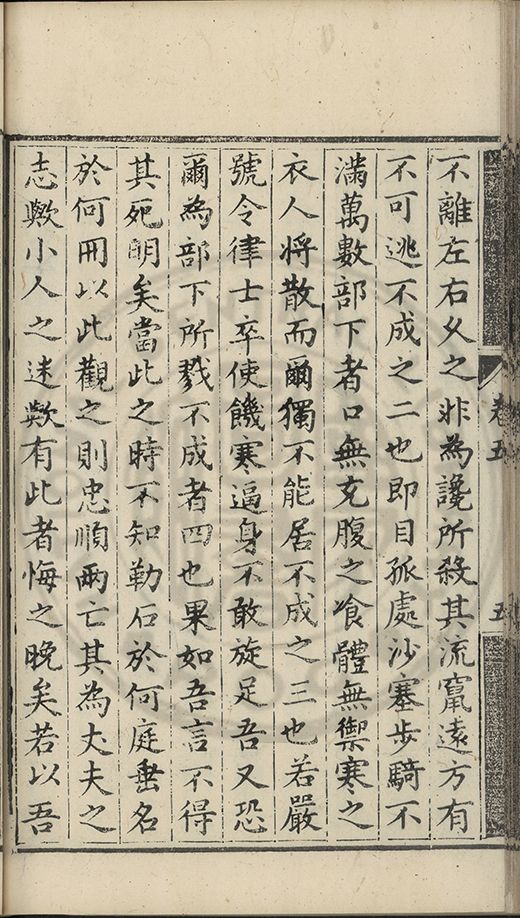 不離左右久之非為讒所殺其流竄遠方有
不可逃不成之二也即目孤處沙塞步騎不
滿萬數部下者口無充腹之飡體無禦寒之
衣人將散而爾獨不能居不成之三也若嚴
號令律士卒使饑寒逼身不敢旋足吾又恐
爾為部下所戮不成者四也果如吾言不得
其死明矣當此之時不知勒石於何庭垂名
於何冊以此觀之則忠順兩亡其為丈夫之
志歟小人之迷歟有此者悔之晚矣若以吾
卷五
五